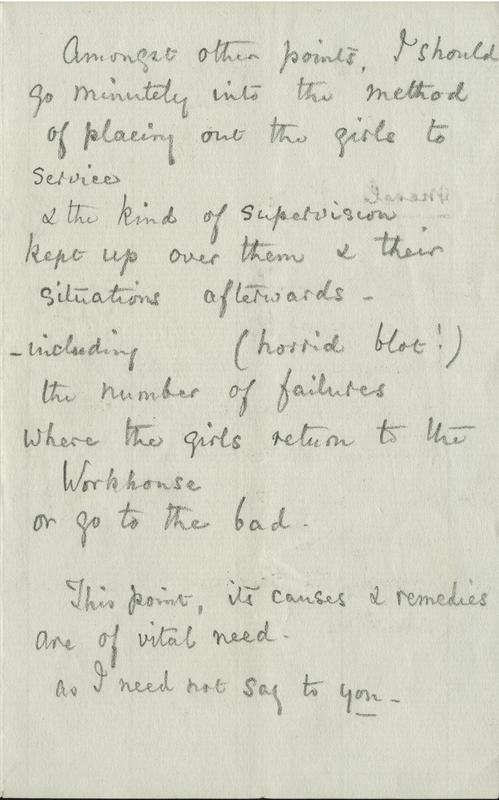 Amongst other points, I should
go minutely into the method
of placing out the girls to
service
& the kind of supervision
kept up over them & their
situations afterwards -
- including (horrid blot!)
the number of failures
where the girls return to the
Workhouse
or go to the bad.
This point, its causes & remedies
are of vital need.
as I need not say to you -